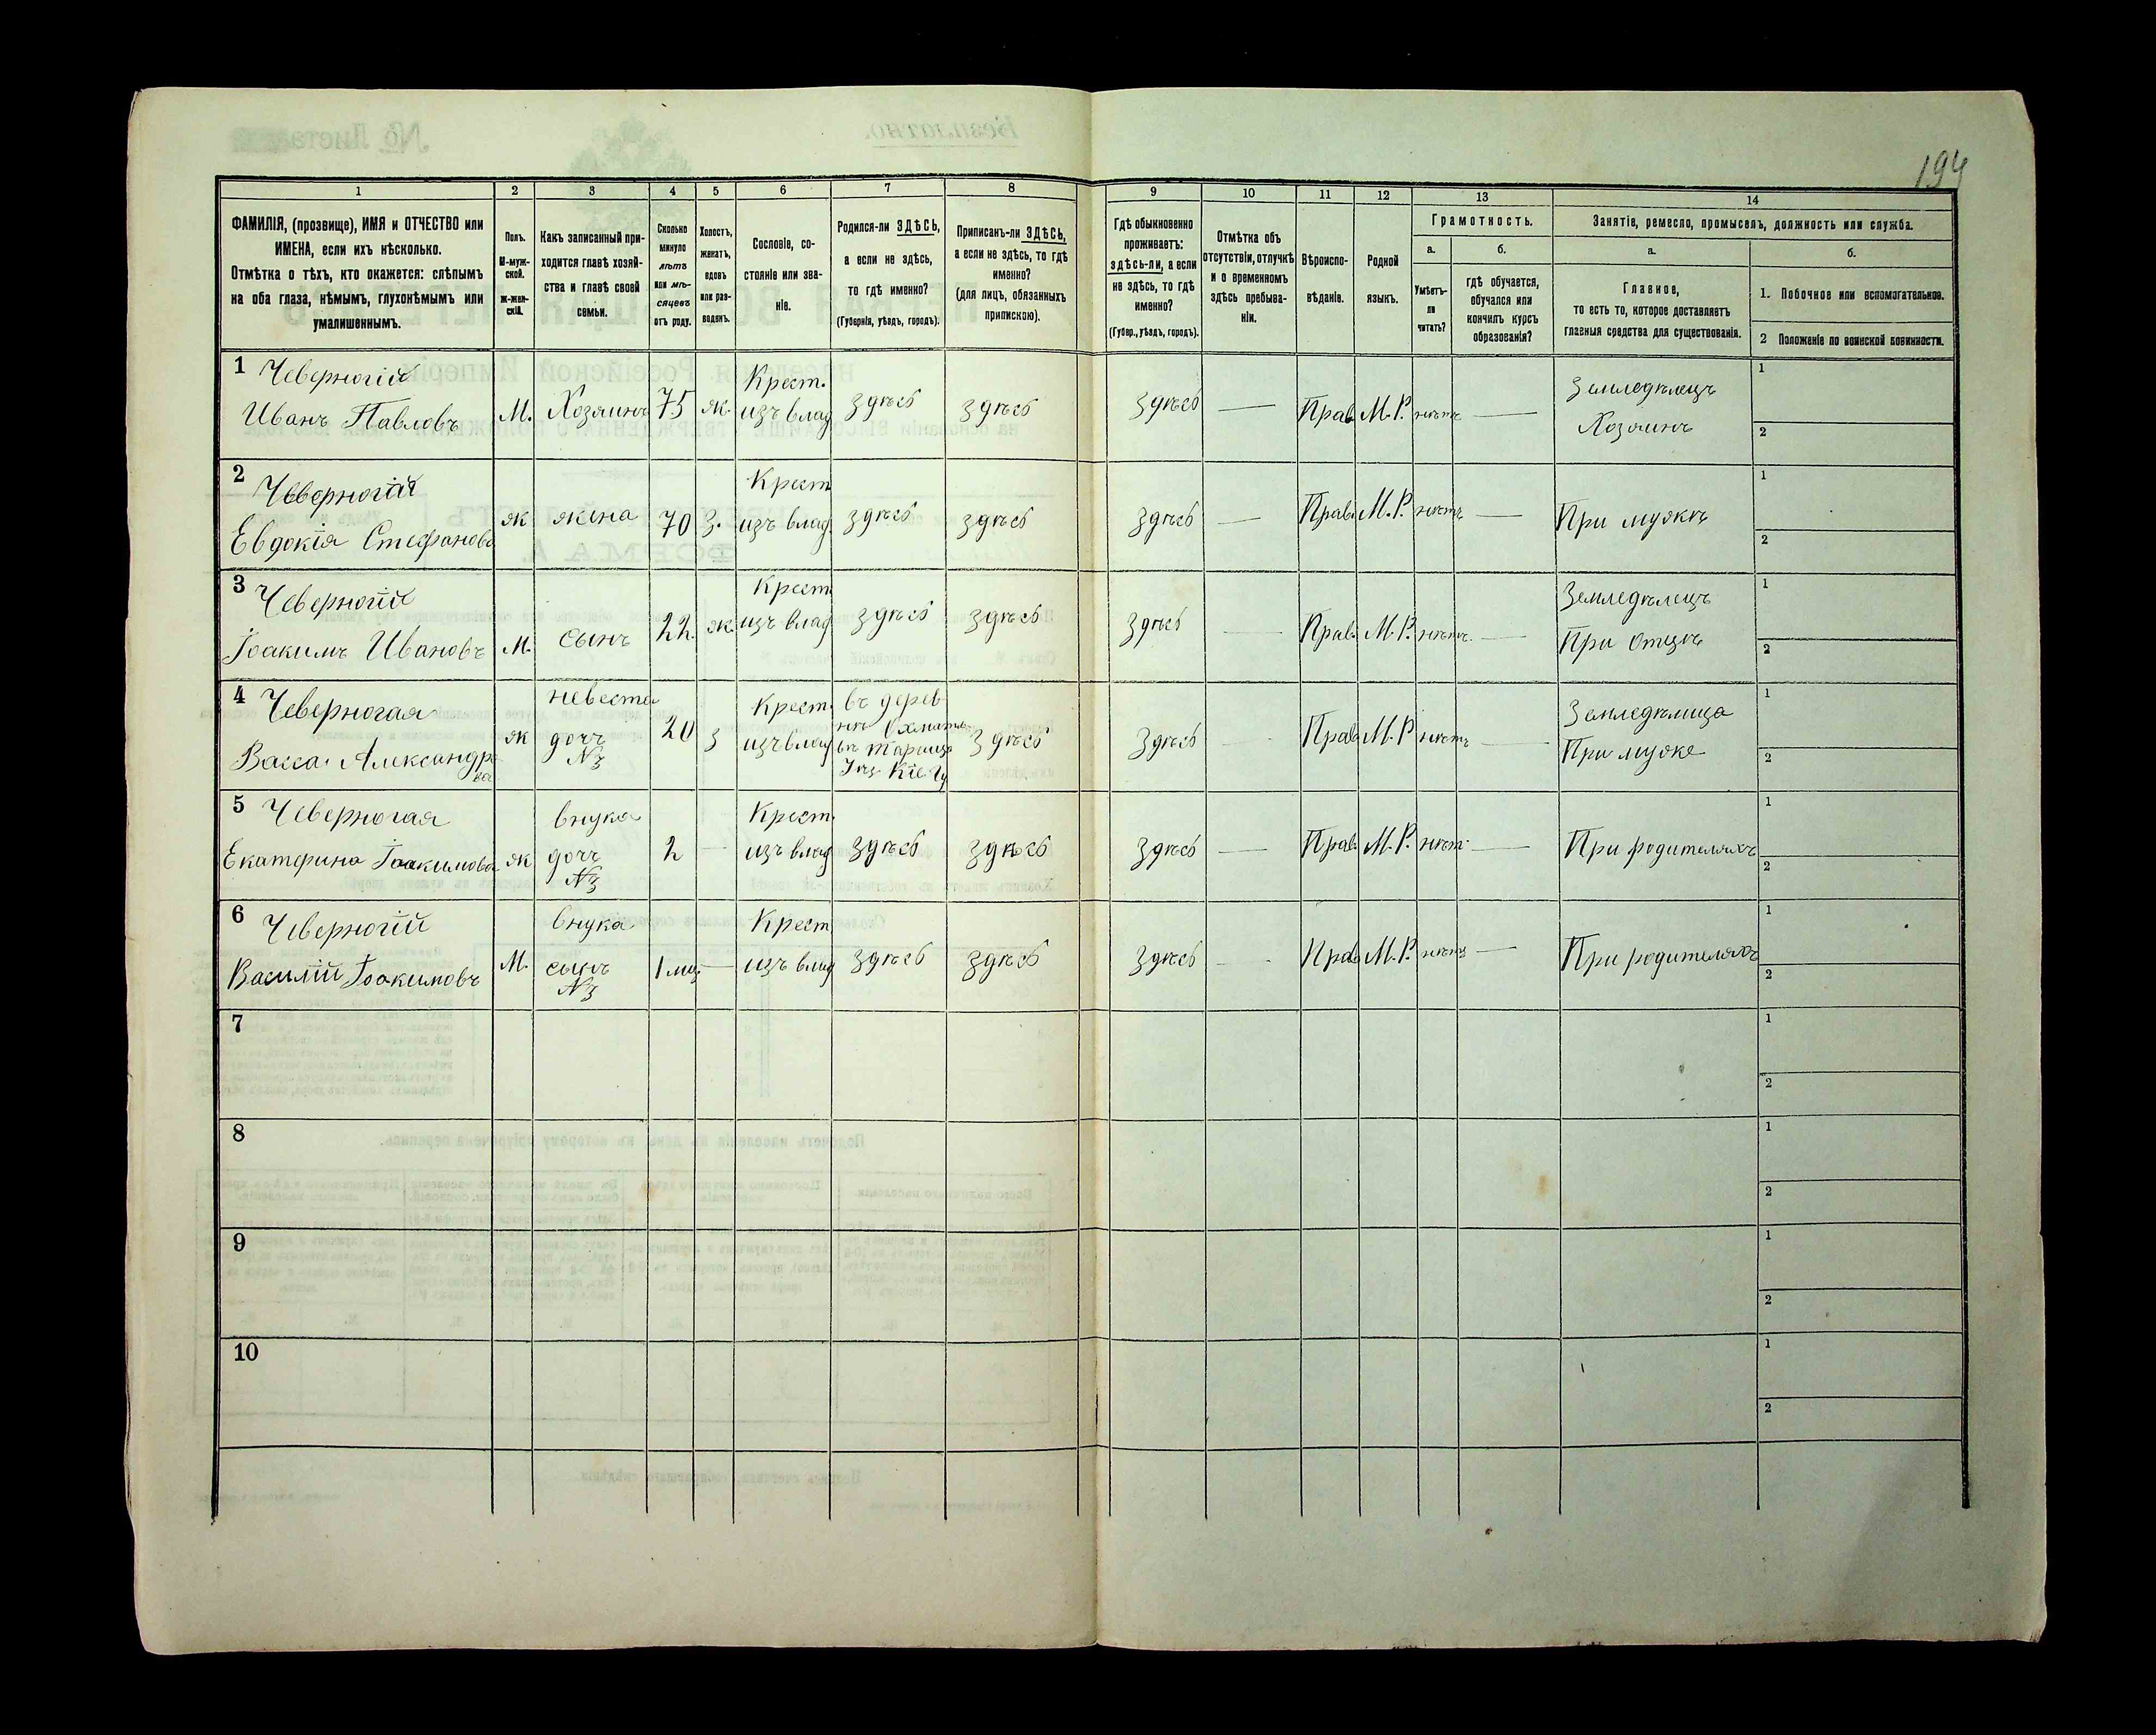 194
1 2 3 4 5 6 7 8 9 10 11 12 13 14
ФАМИЛІЯ, (прозвище), ИМЯ и ОТЧЕСТВО или
ИМЕНА, если ихъ нѣсколько.
Отмѣтка о тѣхъ, кто окажется: слѣпымъ
на оба глаза, нѣмымъ, глухонѣмымъ или
умалишеннымъ.
Полъ.
М-муж-
ской.
ж-жен-
скій.
Какъ записанный при-
ходится главѣ хозяй-
ства и главѣ своей
семьи.
Сколько
минуло
лѣтъ
или мѣ-
сяцевъ
отъ роду.
Холостъ,
женатъ,
вдовъ
или раз-
веденъ.
Сословіе, со-
стояніе или зва-
ніе.
Родился-ли ЗДѢСЬ,
а если не здѣсь,
то гдѣ именно?
(Губернія, уѣздъ, городъ).
Приписанъ-ли ЗДѢСЬ,
а если не здѣсь, то гдѣ
именно?
(для лицъ, обязанныхъ
припискою).
Гдѣ обыкновенно
проживаетъ:
здѣсь-ли, а если
не здѣсь, то гдѣ
именно?
(Губер., уѣздъ, городъ).
Отмѣтка объ
отсутствіи, отлучкѣ
и о временномъ
здѣсь пребыва-
ніи.
Вѣроиспо-
вѣданіе.
Родной
языкъ.
Грамотность.
а. б.
Умѣетъ-
ли
читать?
гдѣ обучается,
обучался или
кончилъ курсъ
образованія?
Занятіе, ремесло, промыселъ, должность или служба.
а. б.
Главное,
то есть то, которое доставляетъ
главныя средства для существованія.
1. Побочное или вспомогательное.
2 Положеніе по воинской повинности.
1 Чеверногій Крест. Земледѣлецъ 1
Иванъ Павловъ М. Хозяинъ 75 ж. изъ влад здѣсь здѣсь здѣсь — Прав М.Р. нѣтъ — Хозяинъ 2
2 Чеверногія Крест 1
Евдокія Стефанова ж жена 70 з. изъ влад. здѣсь здѣсь здѣсь — Прав. М.Р. нѣтъ — При мужѣ 2
3 Чеверногій Крест Земледѣлецъ 1
Іоакимъ Ивановъ М. сынъ 22 ж. изъ влад здѣсь здѣсь здѣсь — Прав. М.Р. нѣтъ. — При отцѣ 2
4 Чеверногая невеста Крест въ дерев Земледѣлица 1
Васса Александро ж дочь 20 з изъ влад нѣ здѣсь здѣсь — Прав М.Р нѣтъ — При муже 2
ва №3 Кіе Гу
5 Чеверногая внука Крест. 1
Екатерина Іоакимова ж дочь 2 — изъ влад здѣсь здѣсь здѣсь — Прав. М.Р. нѣт. — При родителяхъ 2
№3
6 Чеверногій внука Крест 1
Василій Іоакимовъ М. сынъ 1 мц — изъ влад здѣсь здѣсь здѣсь — Прав М.Р. нѣтъ — При родителяхъ 2
№3
7 1
2
8 1
2
9 1
2
10 1
2